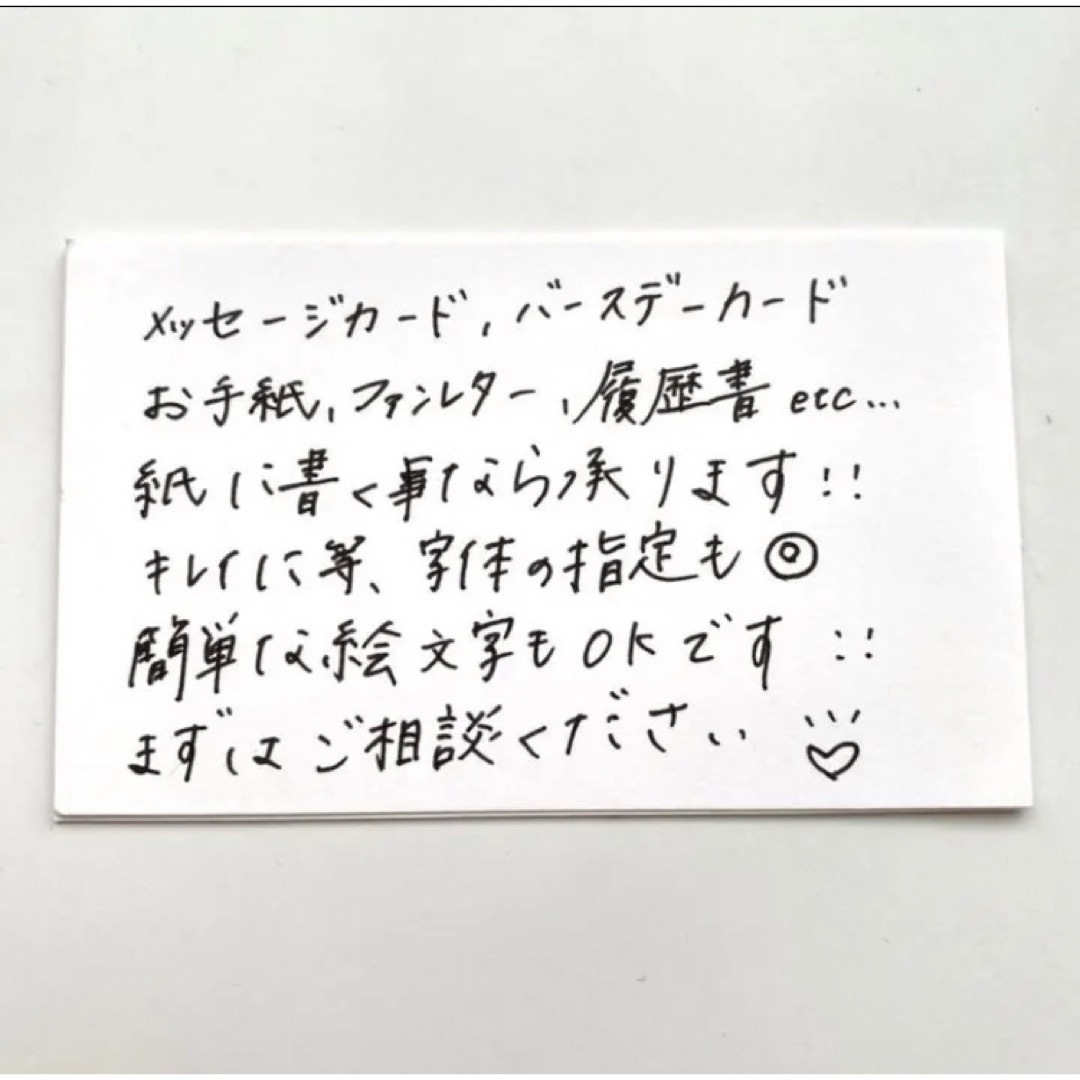 メッセージカード, バースデーカード
お手紙, ファンレター, 履歴書 etc...
紙に書く事なら承ります!!
キレイに等、字体の指定も◎
簡単な絵文字もOKです!!
まずはご相談ください♡